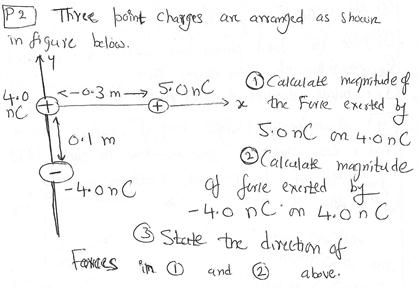 P2 Three point charges are arranged as shown
in figure below.
y
<-0.3 m-> 5.0 nC
4.0
nC
+ + x
0.1 m
-
-4.0 nC
① Calculate magnitude of
the Force exerted by
5.0 nC on 4.0 nC
② Calculate magnitude
of force exerted by
-4.0 nC on 4.0 nC
③ State the direction of
Forces in ① and ② above.